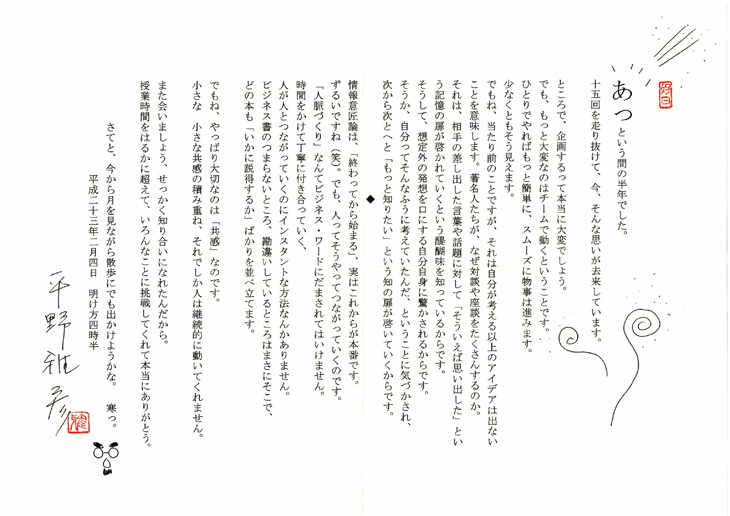 あっという間の半年でした。
十五回を走り抜けて、今、そんな思いが去来しています。
ところで、企画するって本当に大変でしょう。
でも、もっと大変なのはチームで動くということです。
ひとりでやればもっと簡単に、スムーズに物事は進みます。
少なくともそう見えます。
でもね、当たり前のことですが、それは自分が考える以上のアイデアは出ない
ことを意味します。著名人たちが、なぜ対談や座談をたくさんするのか。
それは、相手の差し出した言葉や話題に対して「そういえば思い出した」とい
う記憶の扉が啓かれていくという醍醐味を知っているからです。
そうして、想定外の発想を口にする自分自身に驚かされるからです。
そうか、自分ってそんなふうに考えていたんだ、ということに気づかされ、
次から次へと「もっと知りたい」という知の扉が啓いていくからです。
◆
情報意匠論は、「終わってから始まる」、実はこれからが本番です。
ずるいですね(笑)。でも、人ってそうやってつながっていくのです。
「人脈づくり」なんてビジネス・ワードにだまされてはいけません。
時間をかけて丁寧に付き合っていく、
人が人とつながっていくのにインスタントな方法なんかありません。
ビジネス書のつまらないところ、勘違いしているところはまさにそこで、
どの本も「いかに説得するか」ばかりを並べ立てます。
でもね、やっぱり大切なのは「共感」なのです。
小さな 小さな共感の積み重ね、それでしか人は継続的に動いてくれません。
また会いましょう、せっかく知り合いになれたんだから。
授業時間をはるかに超えて、いろんなことに挑戦してくれて本当にありがとう。
さてと、今から月を見ながら散歩にでも出かけようかな。 寒っ。
平成二十三年二月四日 明け方四時半
平野雅彦